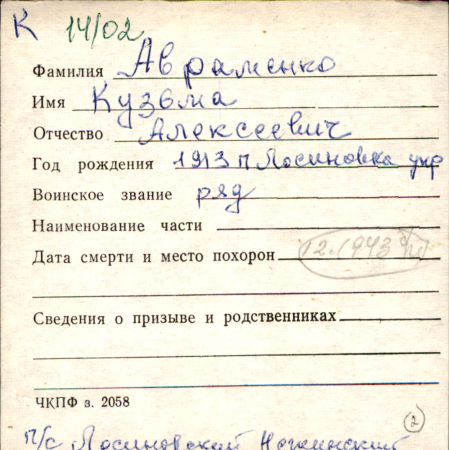 К 14/02
Фамилия Авраменко
Имя Кузьма
Отчество Алексеевич
Год рождения 1913 п Лосиновка укр
Воинское звание ряд
Наименование части
Дата смерти и место похорон 12.1943
Сведения о призыве и родственниках
ЧКПФ з. 2058
2
п/с Лосиновский Нежинский